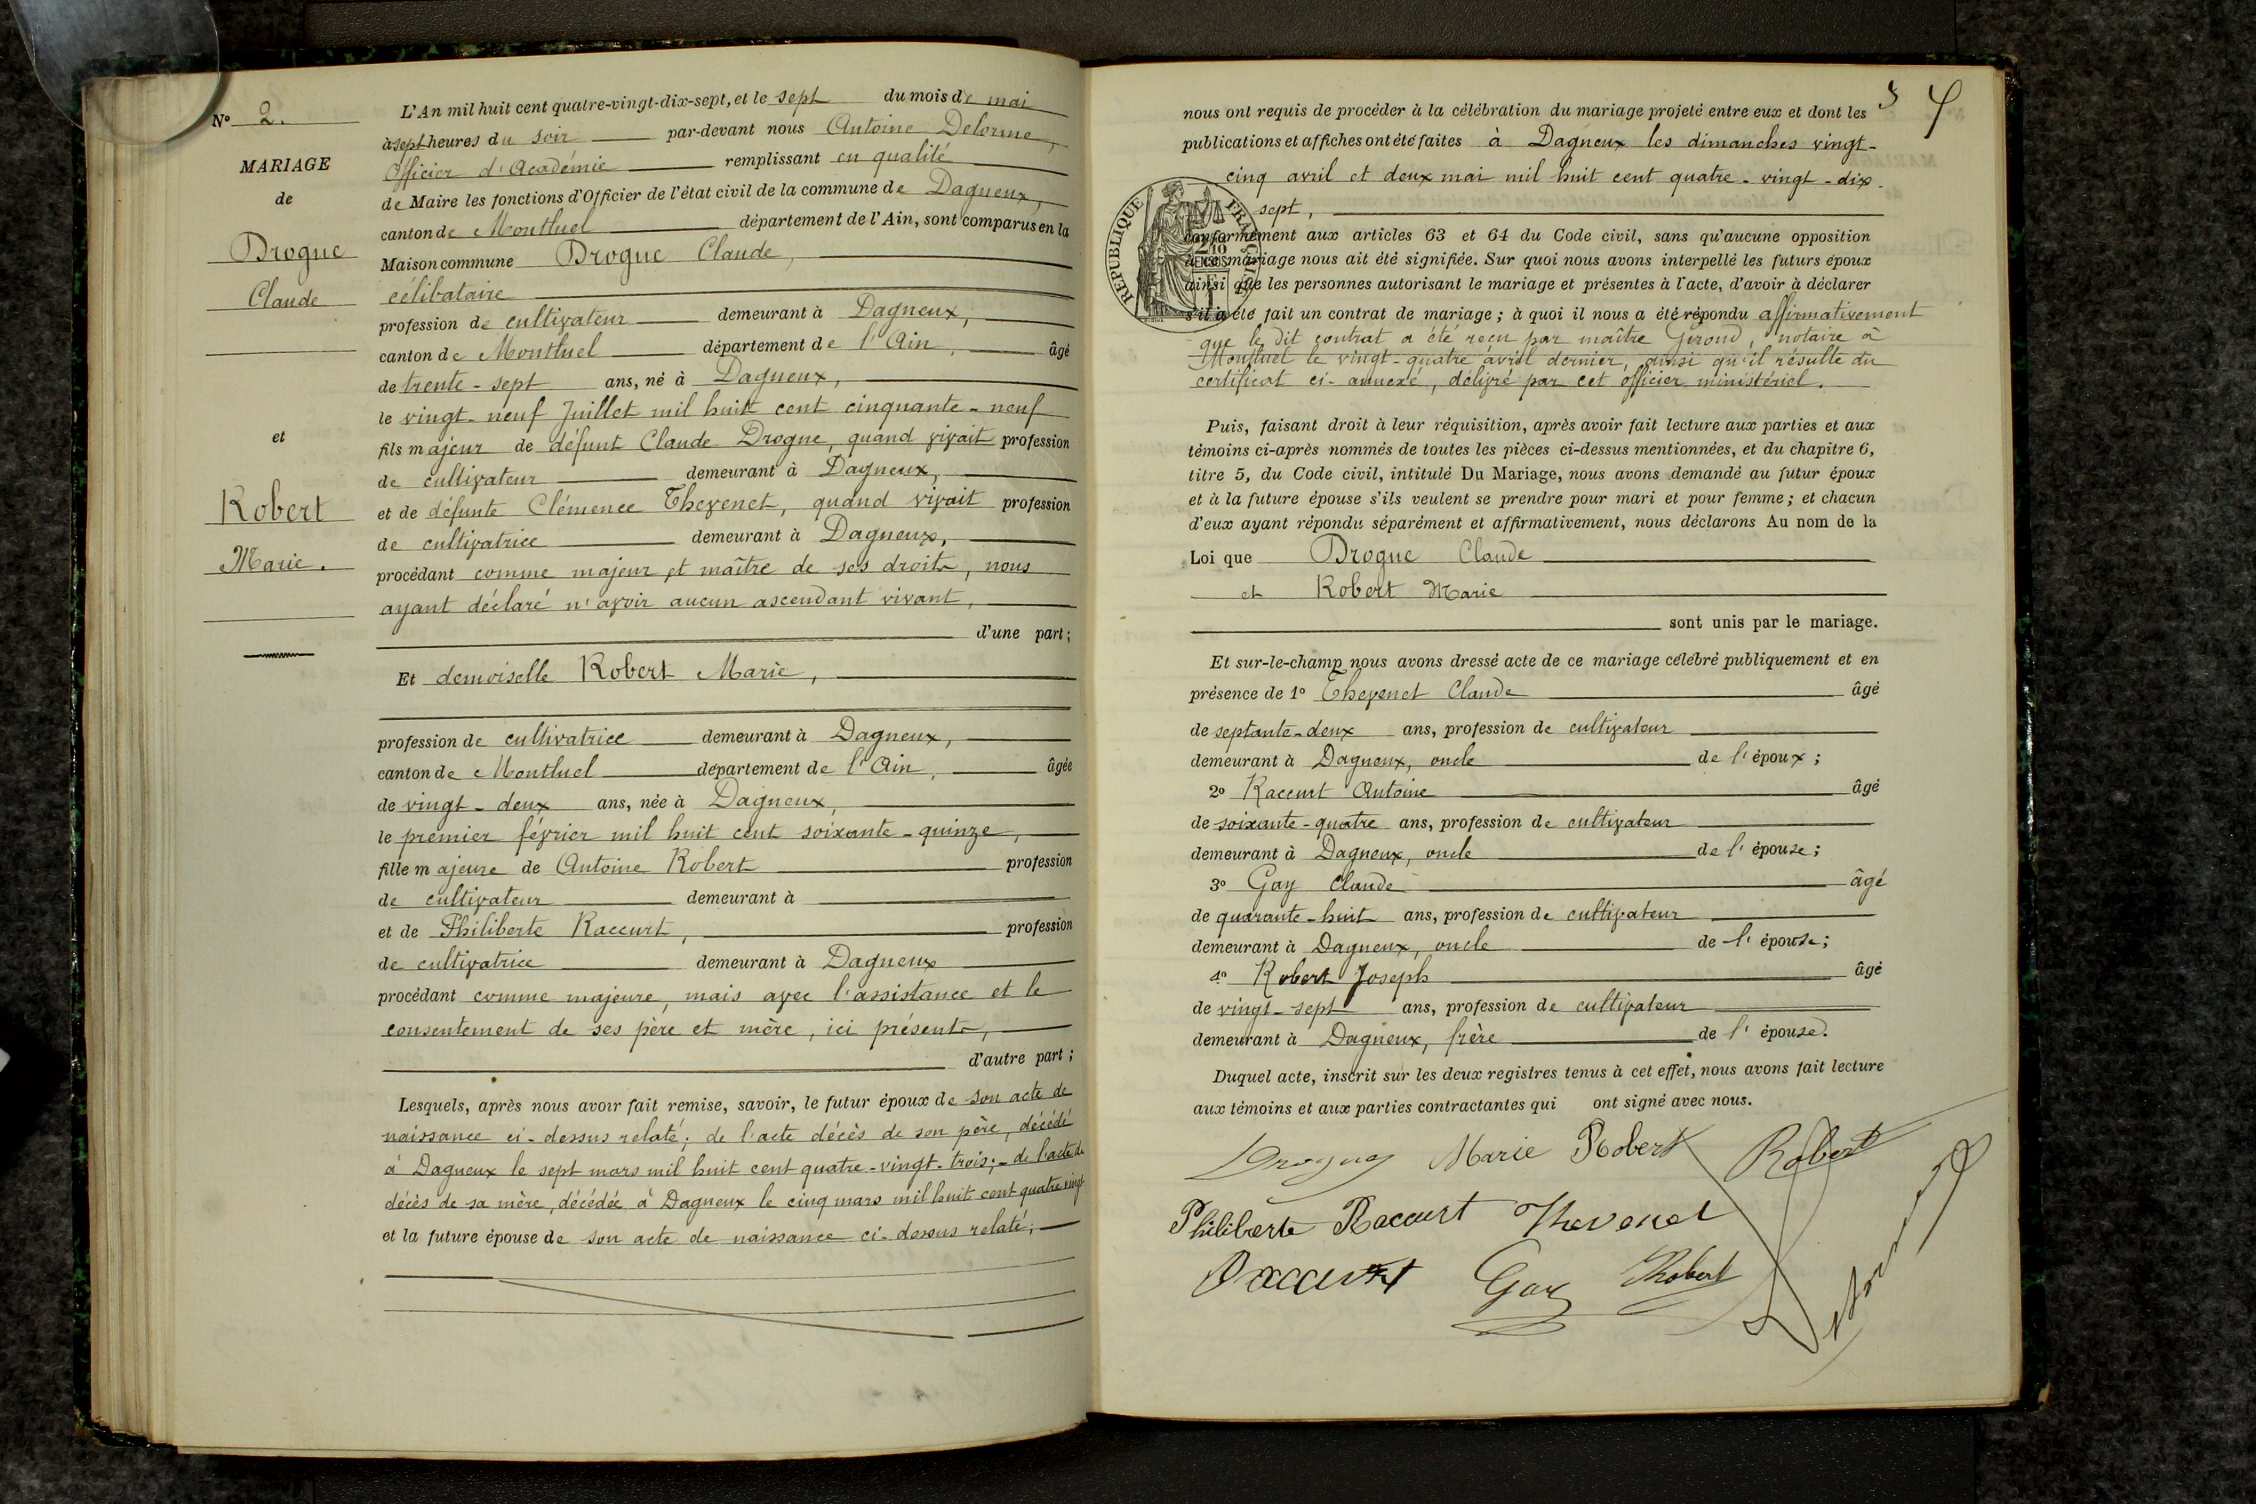 N° 2.
MARIAGE
de
Drogue
Claude
et
Robert
Marie.
L'An mil huit cent quatre-vingt-dix-sept, et le sept du mois de mai
à sept heures du soir par-devant nous Antoine Delorme,
Officier d'Académie remplissant en qualité
de Maire les fonctions d'Officier de l'état civil de la commune de Dagneux,
canton de Montluel département de l'Ain, sont comparus en la
Maison commune Drogue Claude,
célibataire
profession de cultivateur demeurant à Dagneux,
canton de Montluel département de l'Ain, âgé
de trente-sept ans, né à Dagneux,
le vingt-neuf Juillet mil huit cent cinquante-neuf
fils majeur de défunt Claude Drogue, quand vivait profession
de cultivateur demeurant à Dagneux,
et de défunte Clémence Thevenet, quand vivait profession
de cultivatrice demeurant à Dagneux,
procédant comme majeur et maître de ses droits, nous
ayant déclaré n'avoir aucun ascendant vivant,
d'une part;
Et demoiselle Robert Marie,
profession de cultivatrice demeurant à Dagneux,
canton de Montluel département de l'Ain, âgée
de vingt-deux ans, née à Dagneux,
le premier février mil huit cent soixante-quinze,
fille majeure de Antoine Robert profession
de cultivateur demeurant à
et de Philiberte Raccurt, profession
de cultivatrice demeurant à Dagneux
procédant comme majeure, mais avec l'assistance et le
consentement de ses père et mère, ici présents,
d'autre part;
Lesquels, après nous avoir fait remise, savoir, le futur époux de son acte de
naissance ci-dessus relaté; de l'acte décès de son père, décédé
à Dagneux le sept mars mil huit cent quatre-vingt-trois; - de l'acte de
décès de sa mère, décédée à Dagneux le cinq mars mil huit cent quatre vingt
et la future épouse de son acte de naissance ci-dessus relaté;
3 4
nous ont requis de procéder à la célébration du mariage projeté entre eux et dont les
publications et affiches ont été faites à Dagneux les dimanches vingt-
cinq avril et deux mai mil huit cent quatre-vingt-dix-
sept,
RÉPUBLIQUE FRANÇAISE
conformément aux articles 63 et 64 du Code civil, sans qu'aucune opposition
à ce mariage nous ait été signifiée. Sur quoi nous avons interpellé les futurs époux
ainsi que les personnes autorisant le mariage et présentes à l'acte, d'avoir à déclarer
s'il a été fait un contrat de mariage; à quoi il nous a été répondu affirmativement
que le dit contrat a été reçu par maître Giroud, notaire à
Montluel le vingt-quatre avril dernier, ainsi qu'il résulte du
certificat ci-annexé, délivré par cet officier ministériel.
Puis, faisant droit à leur réquisition, après avoir fait lecture aux parties et aux
témoins ci-après nommés de toutes les pièces ci-dessus mentionnées, et du chapitre 6,
titre 5, du Code civil, intitulé Du Mariage, nous avons demandé au futur époux
et à la future épouse s'ils veulent se prendre pour mari et pour femme; et chacun
d'eux ayant répondu séparément et affirmativement, nous déclarons Au nom de la
Loi que Drogue Claude
et Robert Marie
sont unis par le mariage.
Et sur-le-champ nous avons dressé acte de ce mariage célébré publiquement et en
présence de 1° Thevenet Claude âgé
de septante-deux ans, profession de cultivateur
demeurant à Dagneux, oncle de l'époux;
2° Raccurt Antoine âgé
de soixante-quatre ans, profession de cultivateur
demeurant à Dagneux, oncle de l'épouse;
3° Gay Claude âgé
de quarante-huit ans, profession de cultivateur
demeurant à Dagneux, oncle de l'épouse;
4° Robert Joseph âgé
de vingt-sept ans, profession de cultivateur
demeurant à Dagneux, frère de l'épouse.
Duquel acte, inscrit sur les deux registres tenus à cet effet, nous avons fait lecture
aux témoins et aux parties contractantes qui ont signé avec nous.
Drogue Marie Robert Robert
Philiberte Raccurt Thevenet
Raccurt Gay Robert Delorme